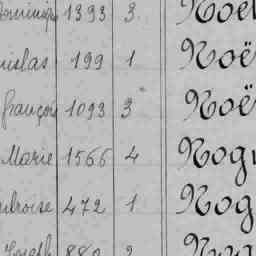 1393 3 Noël
nislas 199 1 Noë
françois 1093 3 Noë
Marie 1566 4 Nog
ambroise 472 1 Nog
Joseph 880 2